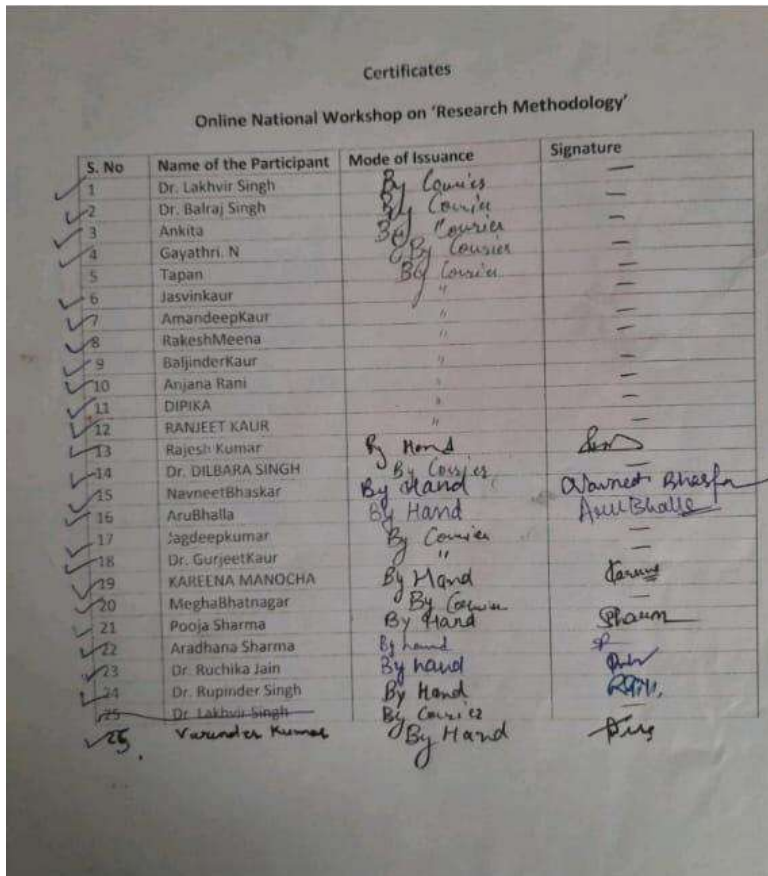 Certificates
Online National Workshop on 'Research Methodology'
S. No Name of the Participant Mode of Issuance Signature
1 Dr. Lakhvir Singh By Courier —
2 Dr. Balraj Singh By Courier —
3 Ankita By Courier —
4 Gayathri. N By Courier —
5 Tapan By Courier —
6 Jasvinkaur " —
7 AmandeepKaur " —
8 RakeshMeena " —
9 BaljinderKaur " —
10 Anjana Rani " —
11 DIPIKA " —
12 RANJEET KAUR " —
13 Rajesh Kumar By Hand
14 Dr. DILBARA SINGH By Courier —
15 NavneetBhaskar By Hand Navneet
16 AruBhalla By Hand AruBhalla
17 Jagdeepkumar By Courier —
18 Dr. GurjeetKaur " —
19 KAREENA MANOCHA By Hand
20 MeghaBhatnagar By Courier —
21 Pooja Sharma By Hand
22 Aradhana Sharma By hand
23 Dr. Ruchika Jain By hand
24 Dr. Rupinder Singh By Hand
25 Dr. Lakhvir Singh By Courier —
25. Varinder Kumar By Hand